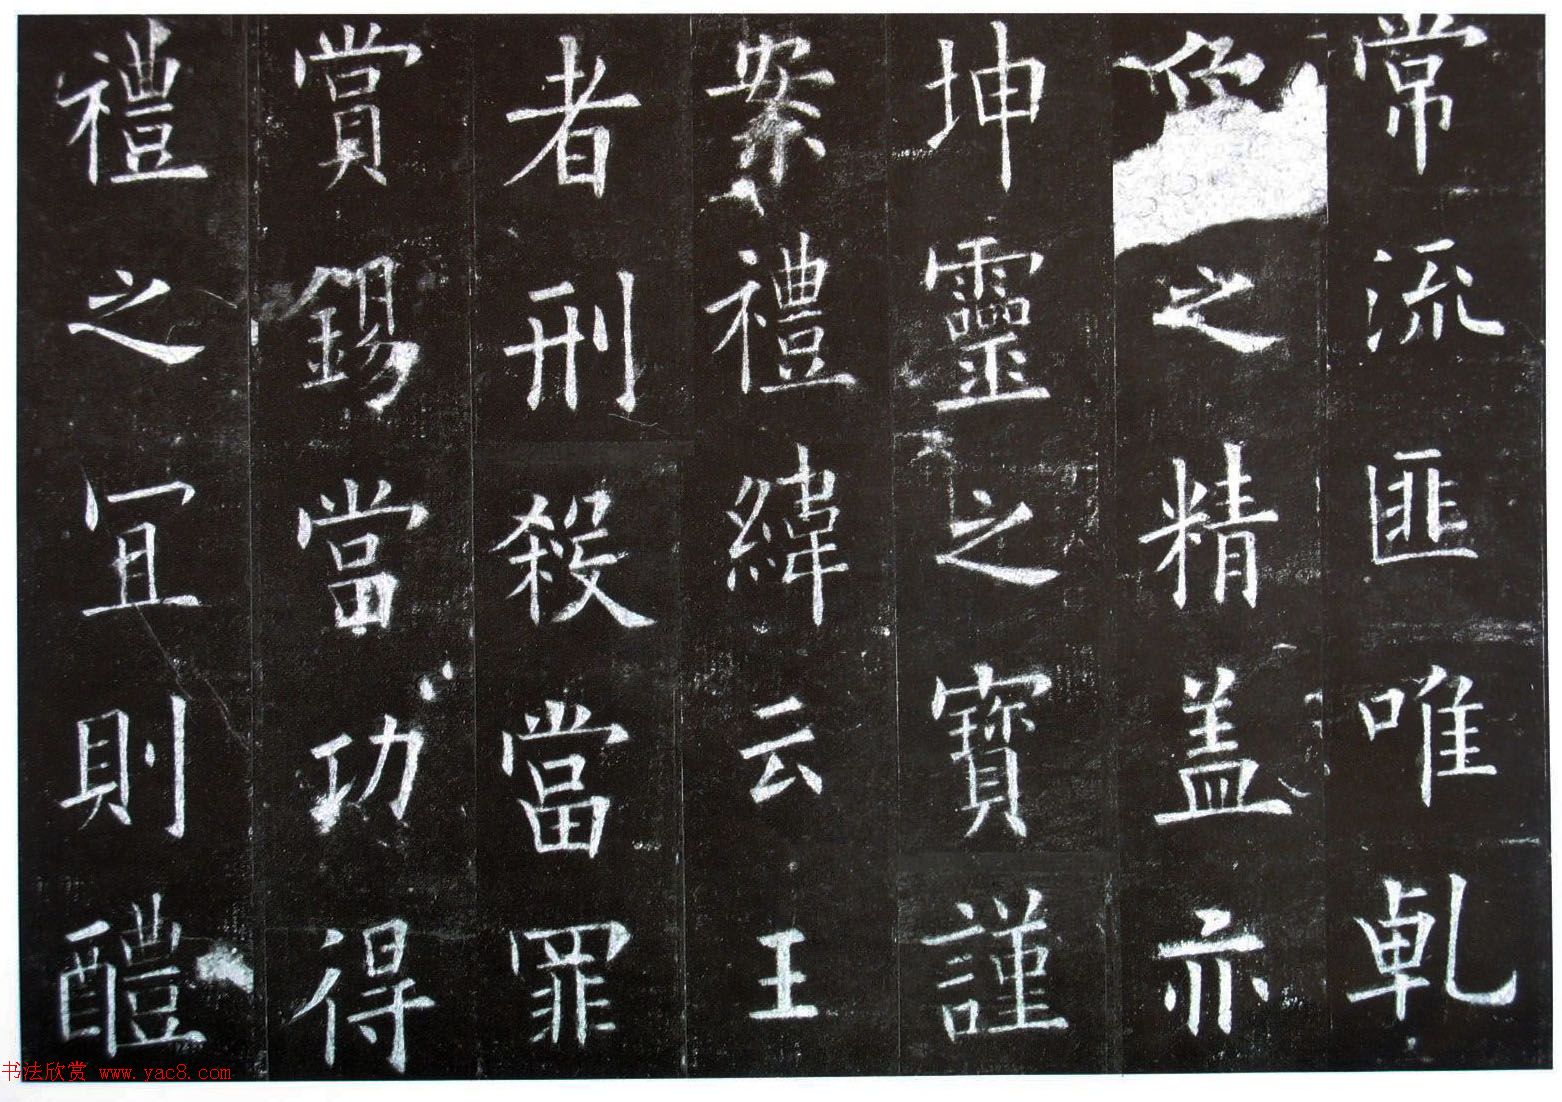 常流匪唯乹
之精盖亦
坤靈之寶謹
案禮緯云王
者刑殺當罪
賞錫當功得
禮之冝則醴
书法欣赏 www.yac8.com